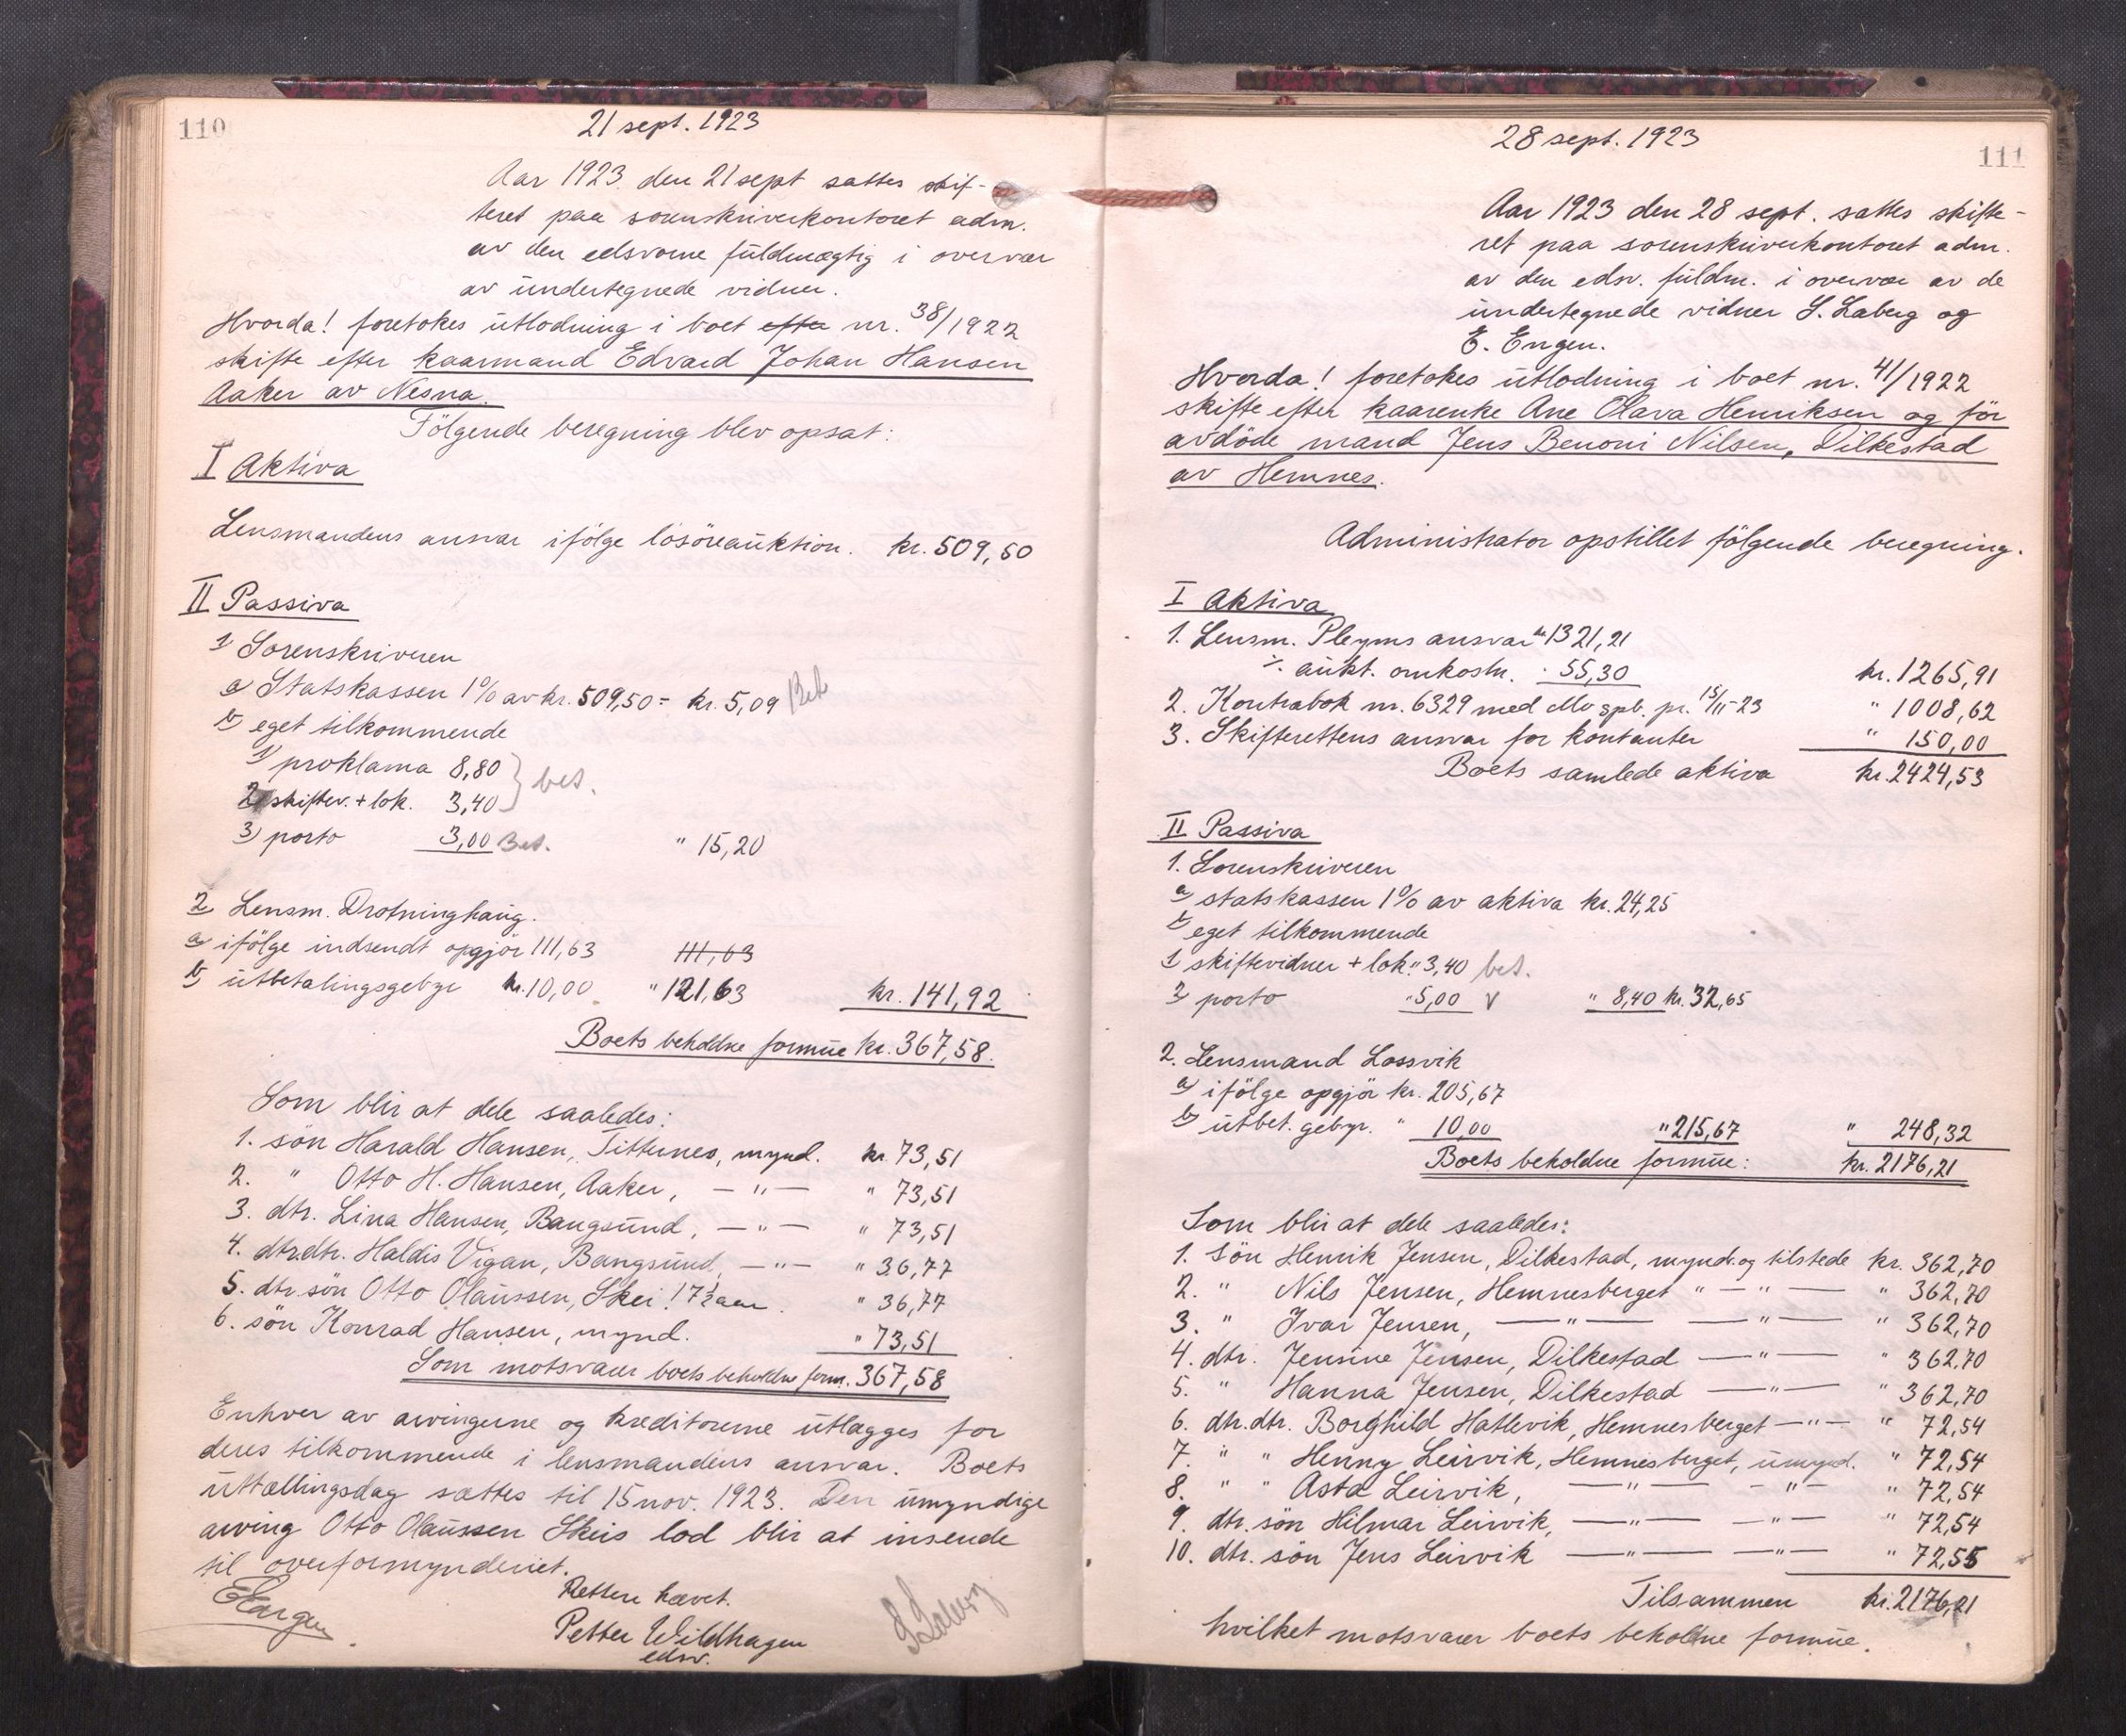 110
21 sept. 1923
Aar 1923 den 21 sept sattes skif-
teret paa sorenskriverkontoret adm.
av den edsvorne fuldmægtig i overvær
av undertegnede vidner.
Hvorda! foretokes utlodning i boet efter nr. 38/1922
skifte efter kaarmand Edvard Johan Hansen
Aaker av Nesna.
Følgende beregning blev opsat:
I Aktiva
Lensmandens ansvar ifölge lösöreauktion. kr. 509,50
II Passiva
1 Sorenskriveren
a Statskassen 1% av kr. 509,50 = kr. 5,09 Bet
b eget tilkommende
1) proklama 8,80
2) skiftev. + lok. 3,40 } bet.
3) porto 3,00 Bet. " 15,20
2 Lensm. Drotninghaug.
a ifölge indsendt opgjør 111,63 111,63
b utbetalingsgebyr kr. 10,00 " 121,63 kr. 141,92
Boets beholdne formue kr. 367,58.
Som blir at dele saaledes:
1. sön Harald Hansen, Titternes, mynd. kr. 73,51
2. " Otto H. Hansen, Aaker, — " — " 73,51
3. dtr. Lina Hansen, Bangsund, — " — " 73,51
4. dtr.dtr. Haldis Vigan, Bangsund, — " — " 36,77
5. dtr. sön Otto Olaussen, Skei 17½ aar. " 36,77
6. sön Konrad Hansen, mynd. " 73,51
Som motsvarer boets beholdne form. 367,58
Enhver av arvingerne og kreditorerne utlægges for
deres tilkommende i lensmandens ansvar. Boets
uttællingsdag sættes til 15 nov. 1923. Den umyndige
arving Otto Olaussen Skeis lod blir at insende
til overformynderiet.
Retten hævet.
E Engen
Petter Wildhagen
edsv.
S Laberg
28 sept. 1923
111
Aar 1923 den 28 sept. sattes skifte-
ret paa sorenskriverkontoret adm.
av den edsv. fuldm. i overvær av de
undertegnede vidner S. Laberg og
E. Engen.
Hvorda! foretokes utlodning i boet nr. 41/1922
skifte efter kaarenke Ane Olava Henriksen og för
avdöde mand Jens Benoni Nilsen, Dilkestad
av Hemnes.
Administrator opstillet fölgende beregning.
I Aktiva
1. Lensm. Pleyms ansvar kr. 1321,21
÷ aukt. omkostn. " 55,30 kr. 1265,91
2. Kontrabok nr. 6329 med Mo spb. pr. 15/11-23 " 1008,62
3. Skifterettens ansvar for kontanter " 150,00
Boets samlede aktiva kr. 2424,53
II Passiva
1. Sorenskriveren
a statskassen 1% av aktiva kr. 24,25
b eget tilkommende
1 skiftevidner + lok. " 3,40 bet.
2 porto " 5,00 v " 8,40 kr. 32,65
2. Lensmand Lossvik
a) ifölge opgjör kr. 205,67
b utbet. gebyr. " 10,00 " 215,67 " 248,32
Boets beholdne formue: kr. 2176,21
Som blir at dele saaledes:
1. Sön Henrik Jensen, Dilkestad, mynd. og tilstede kr. 362,70
2. " Nils Jensen, Hemnesberget " — " — " 362,70
3. " Ivar Jensen, — " — — " — " 362,70
4. dtr. Jensine Jensen, Dilkestad — " — " 362,70
5. " Hanna Jensen, Dilkestad — " — " 362,70
6. dtr.dtr. Borghild Hatlevik, Hemnesberget — " — " 72,54
7. " " Henny Leirvik, Hemnesberget, umynd. " 72,54
8. " " Asta Leirvik, — " — — " — " 72,54
9. dtr. sön Hilmar Leirvik, — " — — " — " 72,54
10. dtr. sön Jens Leirvik — " — — " — " 72,55
Tilsammen kr. 2176,21
hvilket motsvarer boets beholdne formue.